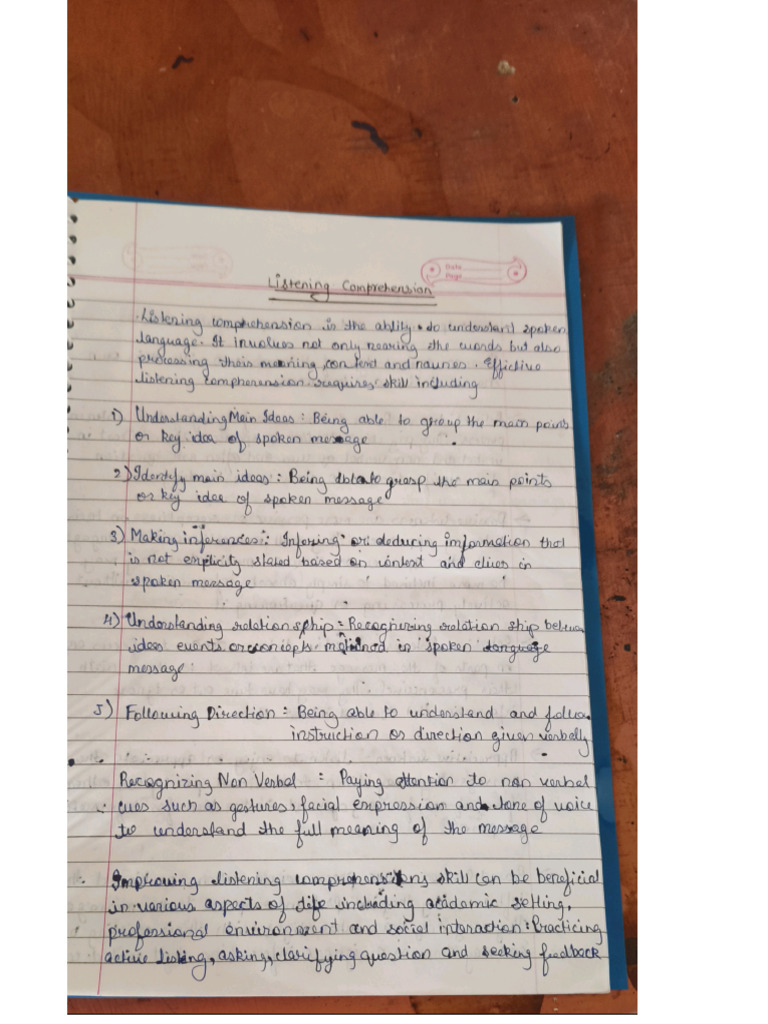 Date
Page
Listening Comprehension
Listening comprehension is the ablity to understand spoken
language. It involves not only nearing the words but also
processing theis meaning context and naunes. Effictive
listening compherension requires skill including
1) Understanding Main Ideas : Being able to group the main points
or key idea of spoken message
2) Identify main ideas : Being able to grasp the main points
or key idea of spoken message
3) Making inferences : Infering or deducing information that
is not explicity stated based on context and clues in
spoken message
4) Understanding relationship = Recognizing relation ship between
ideas events or concepts mentioned in spoken language
message
5) Following Direction : Being able to understand and follow
instruction or direction given verbally
Recognizing Non Verbal : Paying attention to non verbal
cues such as gestures, facial expression and tone of voice
to understand the full meaning of the message
Improving listening comprehensions skill can be beneficial
in various aspects of life including academic setting,
professional environment and social interaction : Practicing
active listing, asking, clarifying question and seeking feedback